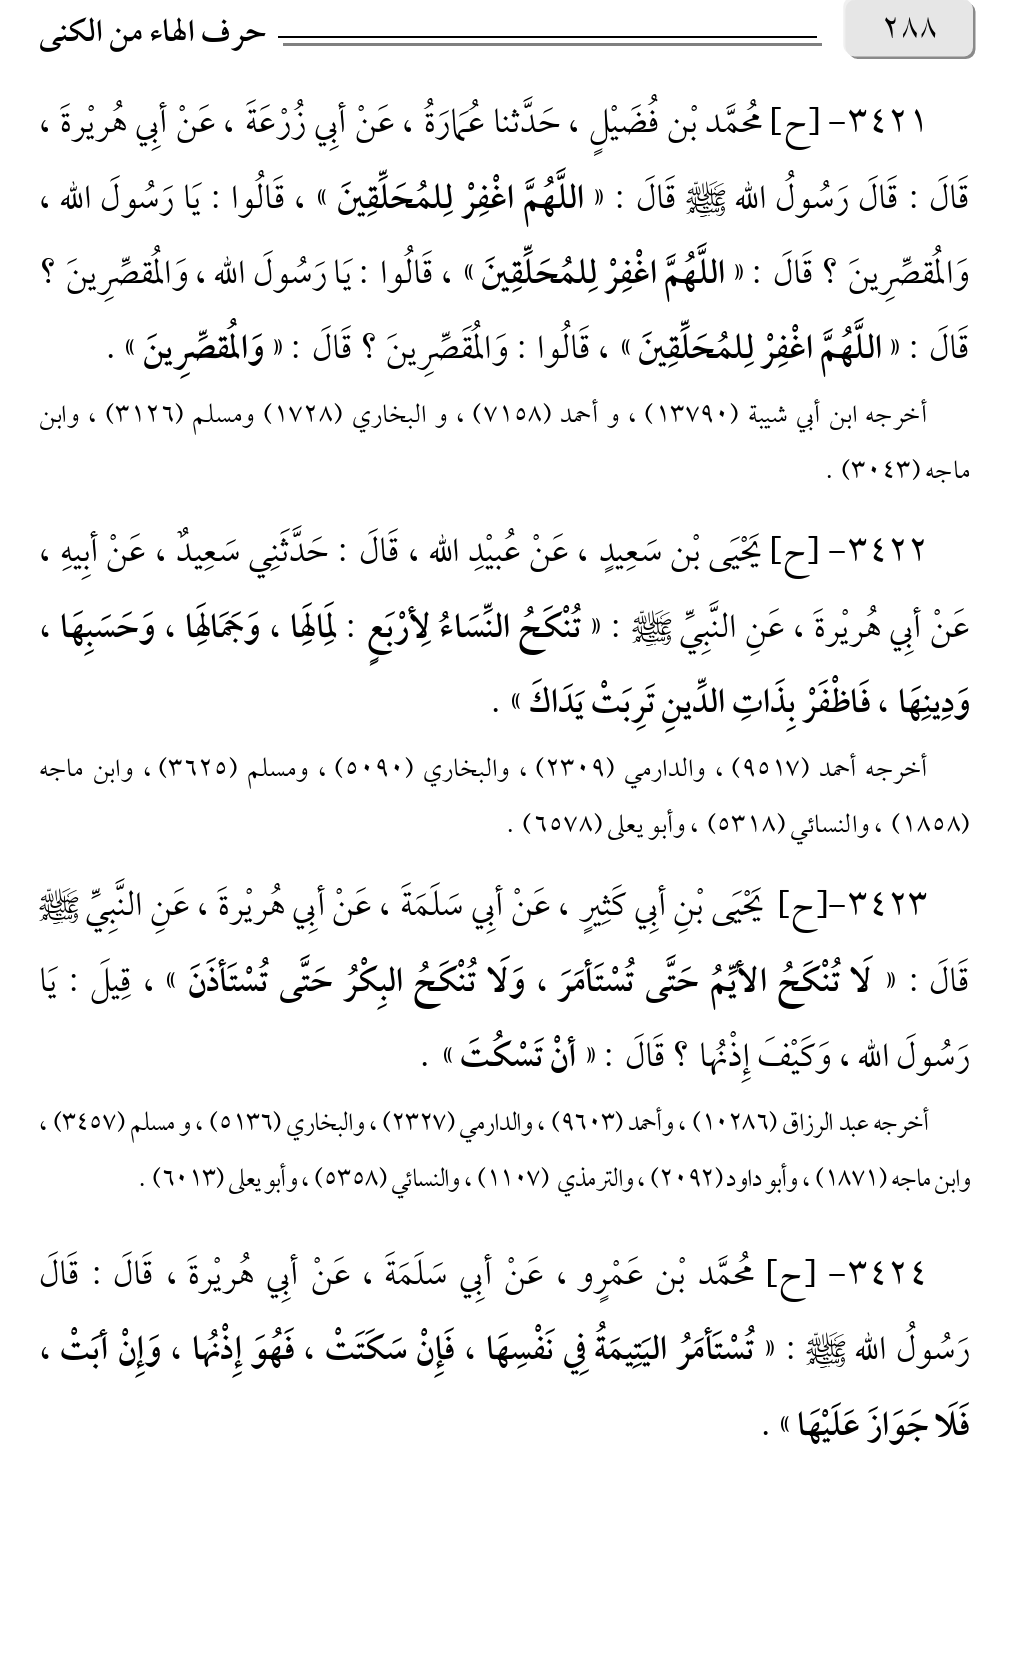 ٢٨٨
حرف الهاء من الكنى
٣٤٢١- [ح] مُحمَّد بْن فُضَيْلٍ ، حَدَّثنا عُمَارَةُ ، عَنْ أبي زُرْعَةَ ، عَنْ أبي هُريْرةَ ،
قَالَ : قَالَ رَسُولُ الله ﷺ قَالَ : « اللَّهُمَّ اغْفِرْ لِلمُحَلِّقِينَ » ، قَالُوا : يَا رَسُولَ الله ،
وَالمُقصِّرِينَ ؟ قَالَ : « اللَّهُمَّ اغْفِرْ لِلمُحَلِّقِينَ » ، قَالُوا : يَا رَسُولَ الله ، وَالمُقصِّرِينَ ؟
قَالَ : « اللَّهُمَّ اغْفِرْ لِلمُحَلِّقِينَ » ، قَالُوا : وَالمُقَصِّرِينَ ؟ قَالَ : « وَالمُقصِّرِينَ » .
أخرجه ابن أبي شيبة (١٣٧٩٠) ، و أحمد (٧١٥٨) ، و البخاري (١٧٢٨) ومسلم (٣١٢٦) ، وابن
ماجه (٣٠٤٣) .
٣٤٢٢- [ح] يَحْيَى بْن سَعِيدٍ ، عَنْ عُبيْدِ الله ، قَالَ : حَدَّثَنِي سَعِيدٌ ، عَنْ أبِيهِ ،
عَنْ أبي هُريْرةَ ، عَنِ النَّبِيِّ ﷺ : « تُنْكَحُ النِّسَاءُ لِأرْبَعٍ : لِمَالِهَا ، وَجَمَالِهَا ، وَحَسَبِهَا ،
وَدِينِهَا ، فَاظْفَرْ بِذَاتِ الدِّينِ تَرِبَتْ يَدَاكَ » .
أخرجه أحمد (٩٥١٧) ، والدارمي (٢٣٠٩) ، والبخاري (٥٠٩٠) ، ومسلم (٣٦٢٥) ، وابن ماجه
(١٨٥٨) ، والنسائي (٥٣١٨) ، وأبو يعلى (٦٥٧٨) .
٣٤٢٣-[ح] يَحْيَى بْنِ أبي كَثِيرٍ ، عَنْ أبي سَلَمَةَ ، عَنْ أبي هُريْرةَ ، عَنِ النَّبِيِّ ﷺ
قَالَ : « لَا تُنْكَحُ الأيِّمُ حَتَّى تُسْتَأمَرَ ، وَلَا تُنْكَحُ البِكْرُ حَتَّى تُسْتَأذَنَ » ، قِيلَ : يَا
رَسُولَ الله ، وَكَيْفَ إِذْنُها ؟ قَالَ : « أنْ تَسْكُتَ » .
أخرجه عبد الرزاق (١٠٢٨٦) ، وأحمد (٩٦٠٣) ، والدارمي (٢٣٢٧) ، والبخاري (٥١٣٦) ، و مسلم (٣٤٥٧) ،
وابن ماجه (١٨٧١) ، وأبو داود (٢٠٩٢) ، والترمذي (١١٠٧) ، والنسائي (٥٣٥٨) ، وأبو يعلى (٦٠١٣) .
٣٤٢٤- [ح] مُحمَّد بْن عَمْرٍو ، عَنْ أبي سَلَمَةَ ، عَنْ أبي هُريْرةَ ، قَالَ : قَالَ
رَسُولُ الله ﷺ : « تُسْتَأمَرُ اليَتِيمَةُ فِي نَفْسِهَا ، فَإِنْ سَكَتَتْ ، فَهُوَ إِذْنُها ، وَإِنْ أبَتْ ،
فَلَا جَوَازَ عَلَيْهَا » .